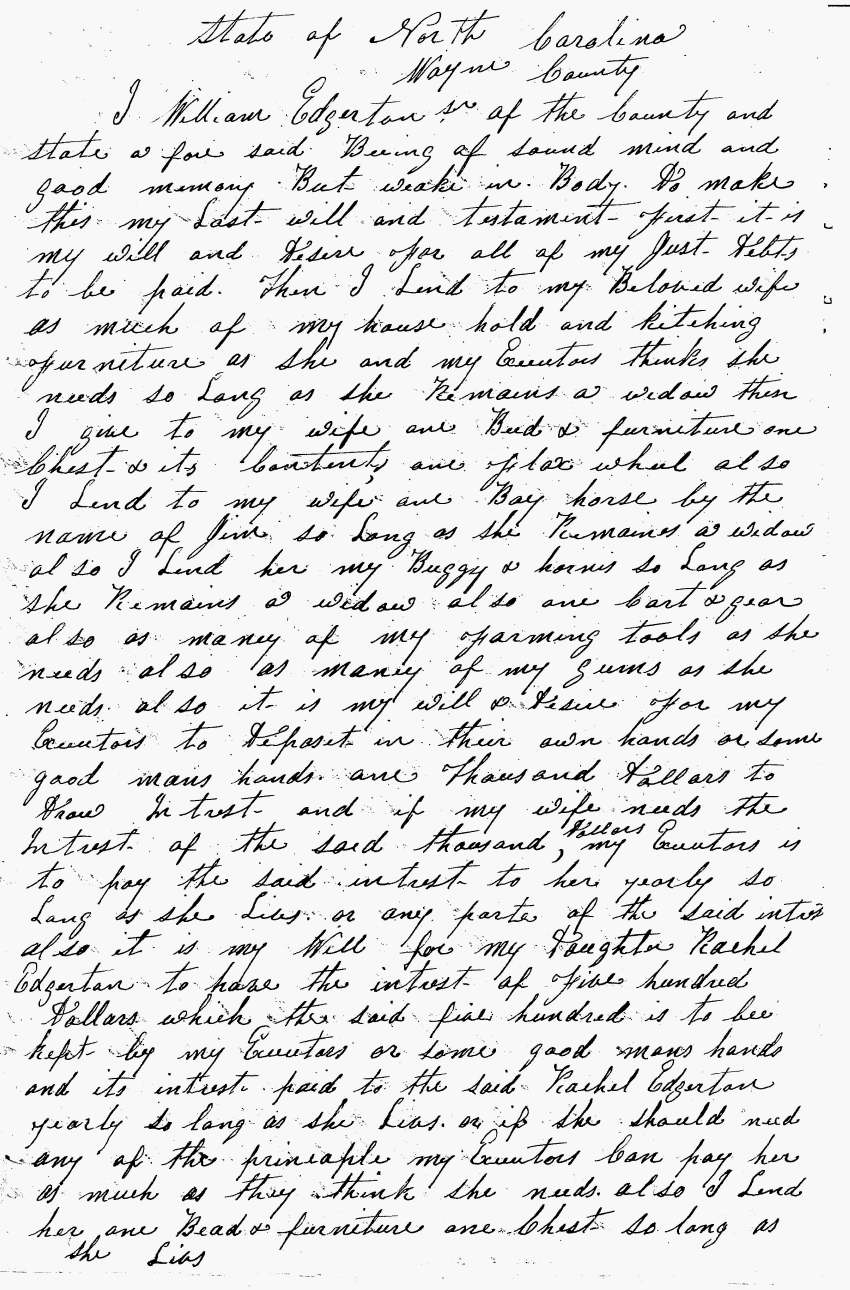 State of North Carolina
Wayne County
I William Edgerton Sr of the County and
state a fore said Beeing of sound mind and
good memory But weake in Body. Do make
this my Last will and testament first it is
my will and Desire for all of my Just Debts
to be paid. Then I Lend to my Beloved wife
as much of my house hold and kitching
furniture as she and my Executors thinks she
needs so Long as she Remains a widow then
I give to my wife one Bed & furniture one
Chest & its Contents, one flax wheel also
I Lend to my wife one Bay horse by the
name of Jim so Long as she Remaines a widow
also I Lend her my Buggy & harnis so Long as
she Remains a widow also one Cart & gear
also as maney of my farming tools as she
needs also as maney of my guns as she
needs. also it is my will & Desire for my
Executors to Deposit in their own hands or some
good mans hands. one Thousand Dollars to
Draw Intrest and if my wife needs the
Intrest of the said thousand, Dollars my Executors is
to pay the said intrest to her yearly so
Long as she Livs. or any parte of the said intres
also it is my Will for my Daughter Rachel
Edgerton to have the intrest of five hundred
Dollars which the said five hundred is to bee
kept by my Executors or some good mans hands
and its intrest paid to the said Rachel Edgerton
yearly so long as she Livs. or if she should need
any of the principle my Executors Can pay her
as much as they think she needs. also I Lend
her one Bead & furniture one Chest so long as
she Livs